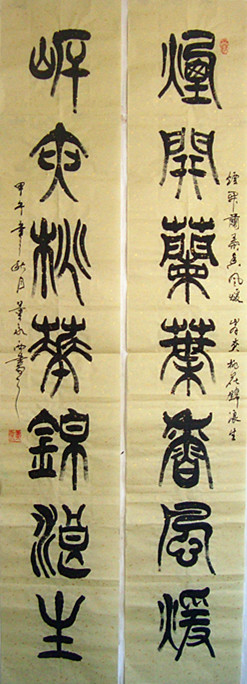 煙開蘭葉香風煖
煙開蘭葉香風暖 岸夾桃花錦浪生
岸夾桃華錦浪生
甲午年秋月董永西書